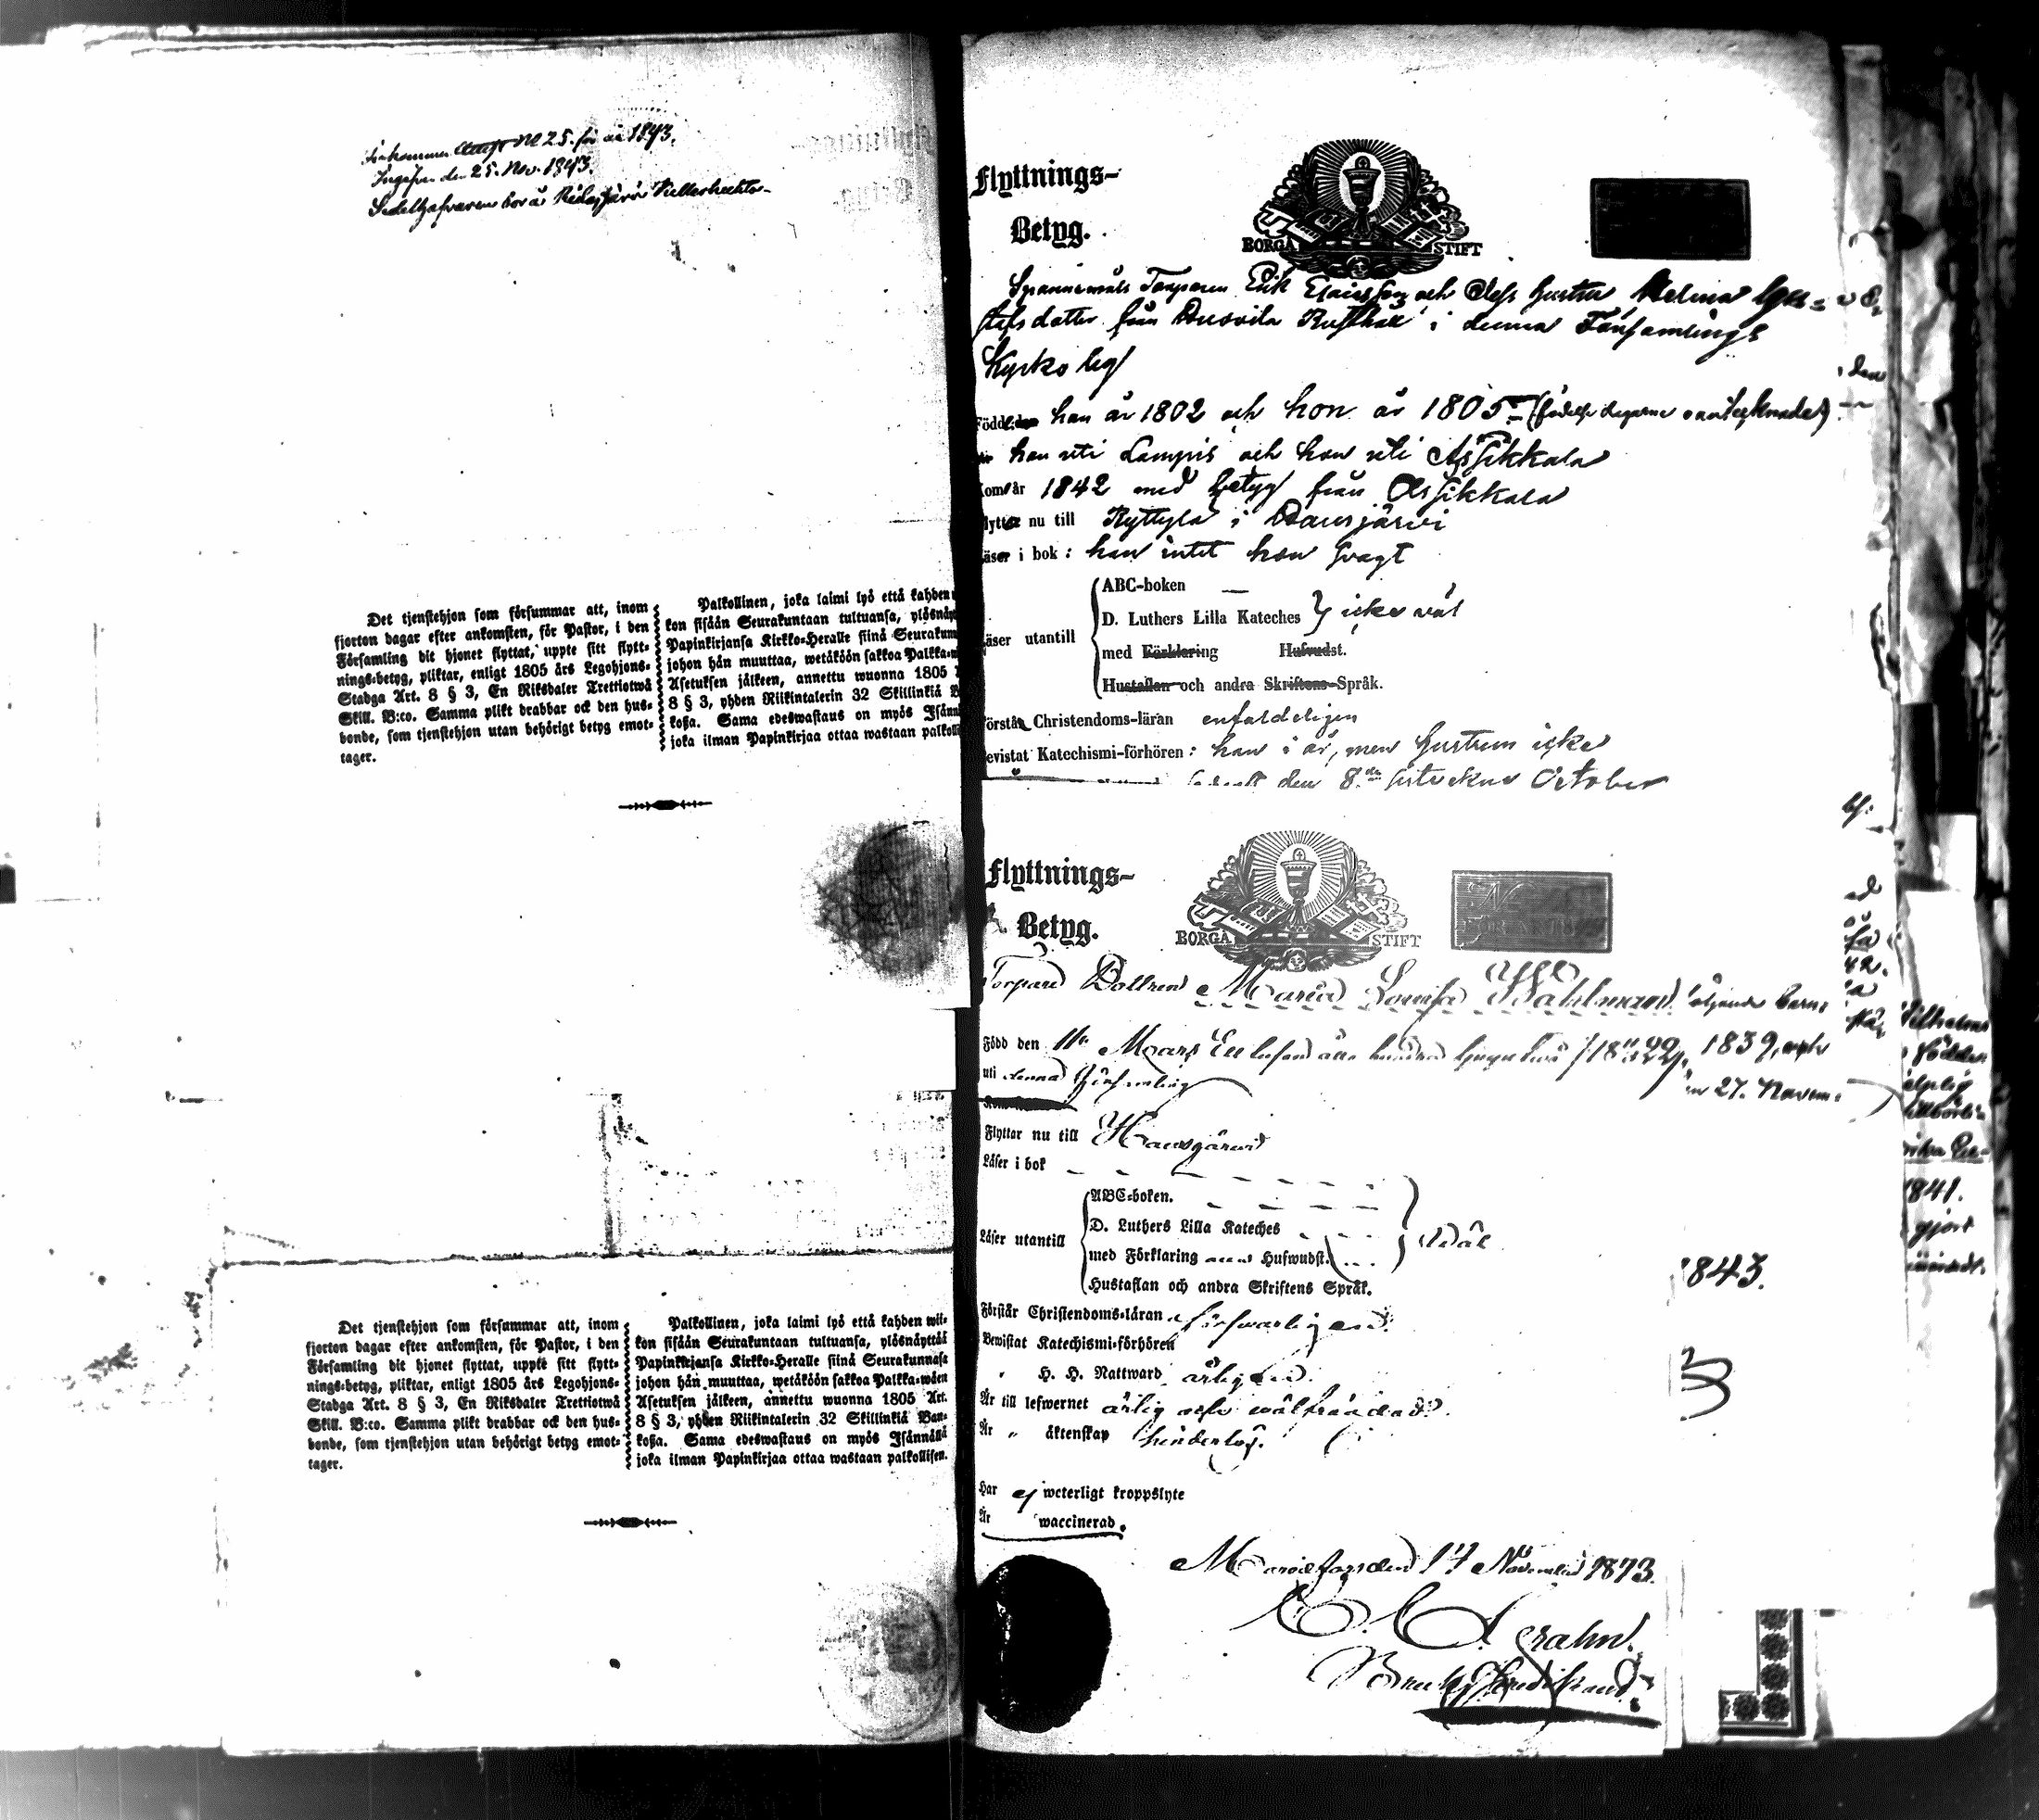 Inkomne Attest No 25. för år 1843.
Ingifven den 25. Nov. 1843.
Sedelhafvaren bor å
Det tjenstehjon som försummar att, inom
fjorton dagar efter ankomsten, för Pastor, i den
Församling dit hjonet flyttat, uppte sitt flytt-
nings-betyg, pliktar, enligt 1805 års Legohjons-
Stadga Art. 8 § 3, En Riksdaler Trettiotwå
Skill. B:co. Samma plikt drabbar ock den hus-
bonde, som tjenstehjon utan behörigt betyg emot-
tager.
Palkollinen, joka laimi lyö että kahden
kon sisään Seurakuntaan tultuansa, ylösnäyt
Papinkirjansa Kirkko-Heralle siinä Seurakun
johon hän muuttaa, wetäköön sakkoa Palkka-w
Asetuksen jälkeen, annettu wuonna 1805
8 § 3, yhden Riikintalerin 32 Skillinkiä B
koßa. Sama edeswastaus on myös Isänn
joka ilman Papinkirjaa ottaa wastaan palkolli
Det tjenstehjon som försummar att, inom
fjorton dagar efter ankomsten, för Pastor, i den
Församling dit hjonet flyttat, uppte sitt flytt-
nings-betyg, pliktar, enligt 1805 års Legohjons-
Stadga Art. 8 § 3, En Riksdaler Trettiotwå
Skill. B:co. Samma plikt drabbar ock den hus-
bonde, som tjenstehjon utan behörigt betyg emot-
tager.
Palkollinen, joka laimi lyö että kahden wii-
kon sisään Seurakuntaan tultuansa, ylösnäyttää
Papinkirjansa Kirkko-Heralle siinä Seurakunnasa
johon hän muuttaa, wetäköön sakkoa Palkka-wäen
Asetuksen jälkeen, annettu wuonna 1805 Art.
8 § 3, yhden Riikintalerin 32 Skillinkiä Ban-
koßa. Sama edeswastaus on myös Isännällä
joka ilman Papinkirjaa ottaa wastaan palkollisen.
Flyttnings-
Betyg.
BORGÅ STIFT
Spannemåls Torparen Erik och dess hustru Helena Gus-
tafsdotter från Rusthåll i denna Församlings
Kyrkoby
Födde han år 1802 och hon år 1805 (födelse dagarne oantecknade)
han uti Lampis och hon uti Assikkala
kom år 1842 med betyg från Assikkala
flytta nu till Ryttylä i Hausjärvi
läser i bok: han intet hon svagt
läser utantill
ABC-boken
D. Luthers Lilla Kateches } icke väl
med Förklaring Hufvudst.
Hustaflan och andra Skriftens Språk.
förstå Christendoms-läran enfaldeligen
bevistat Katechismi-förhören: han i år, men hustrun icke
den 8de October
Flyttnings-
Betyg.
BORGÅ STIFT
Torpare Dottren Maria Lovisa
Född den 11 Mars Ett tusend åtta hundrad tjugu två /1822/.
uti denna Församling
Flyttar nu till Hausjärwi
Läser i bok
Läser utantill
ABC-boken.
D. Luthers Lilla Kateches
med Förklaring Hufwudst.
Hustaflan och andra Skriftens Språk.
Wäl
Förstår Christendoms-läran försvarligen.
Bewistat Katechismi-förhören
" H. H. Nattward årligen.
Är till lefwernet ärlig och wälfrägdad.
Är " äktenskap hinderlös.
Har ej weterligt kroppslyte
Är waccinerad.
Mariefors den 17 November 1843.
Grahn.
Bruks Predikant
1839,
27. Novem-
1843.
1841.
gjort